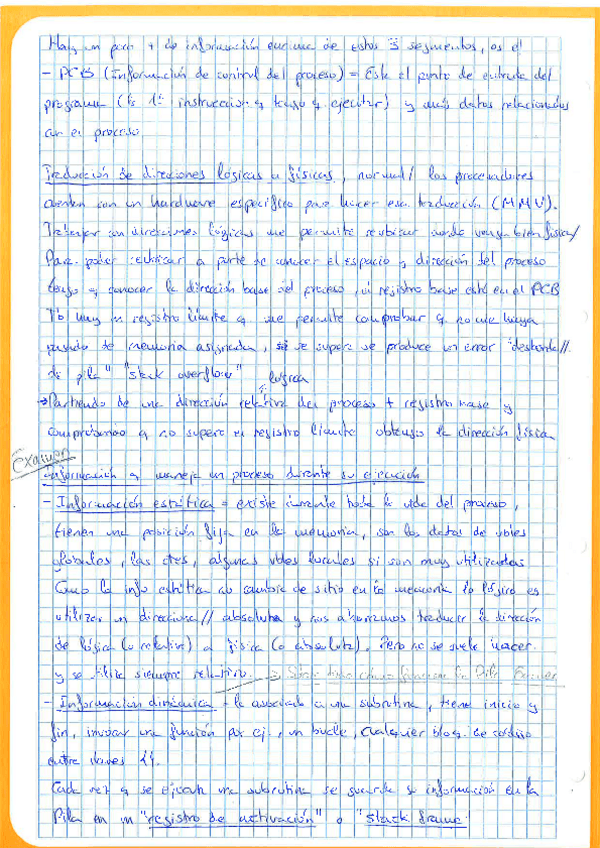 Hay un poco + de información encima de estos 3 segmentos, es el
- PCB (Información de control del proceso) = Está el punto de entrada del
programa (la 1ª instrucción q tengo q ejecutar) y más datos relacionados
con el proceso.
Traducción de direcciones lógicas a físicas, normal// los procesadores
cuentan con un hardware específico para hacer esa traducción (MMU).
Trabajar con direcciones lógicas me permite reubicar donde venga bien física//
Para poder reubicar a parte de conocer el espacio y dirección del proceso
tengo q conocer la dirección base del proceso, el registro base está en el PCB
Tb hay un registro límite q me permite comprobar q no me haya
pasado de memoria asignada, si se supera se produce un error "desborda//
de pila" "stack overflow"
lógica
→ Partiendo de una dirección relativa del proceso + registro base y
comprobando q no supero el registro límite obtengo la dirección física
Examen
Información q maneja un proceso durante su ejecución
- Información estática = existe durante toda la vida del proceso,
tienen una posición fija en la memoria, son los datos de vbles
globales, las ctes, algunas vbles locales si son muy utilizadas
Como la info estática no cambia de sitio en la memoria lo lógico es
utilizar un direcciona// absoluta y nos ahorramos traducir la dirección
de lógica (o relativa) a física (o absoluta). Pero no se suele hacer
y se utiliza siempre relativo. → Saber cómo funciona la Pila Examen
- Información dinámica = la asociada a una subrutina, tiene inicio y
fin, invocar una función por ej, un bucle, cualquier bloq. de código
entre llaves {}.
Cada vez q se ejecuta una subrutina se guarda su información en la
Pila en un "registro de activación" o "stack frame"